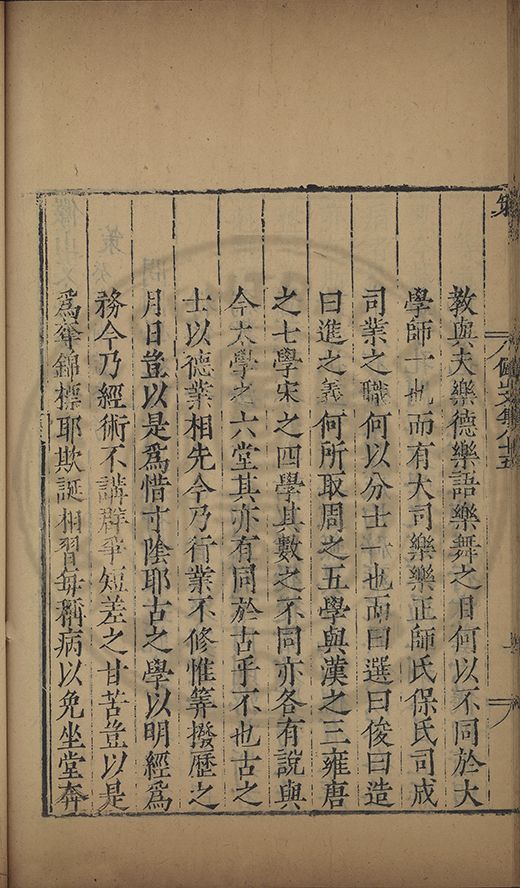 教與夫樂德樂語樂舞之目何以不同於大
學師一也而有大司樂樂正師氏保氏司成
司業之職何以分士一也而曰選曰俊曰造
曰進之義何所取周之五學與漢之三雍唐
之七學宋之四學其數之不同亦各有說與
今太學之六堂其亦有同於古乎不也古之
士以德業相先今乃行業不修惟筭撥歷之
月日豈以是爲惜寸陰耶古之學以明經爲
務今乃經術不講羣爭短差之甘苦豈以是
爲奪錦標耶欺誕相習每稱病以免坐堂奔